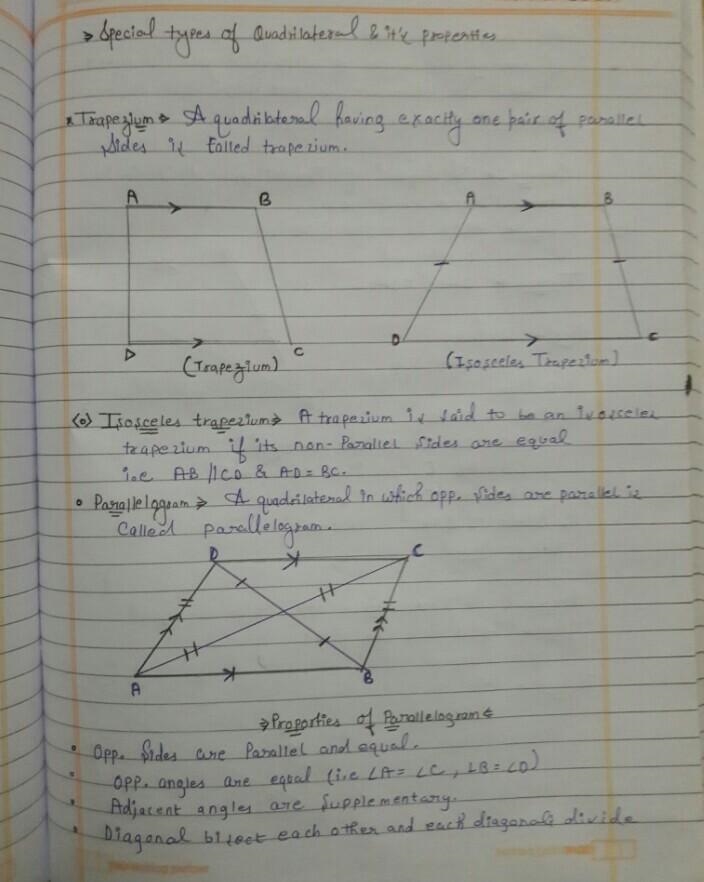 > Special types of Quadrilateral & it's properties
* Trapezium > A quadrilateral having exactly one pair of parallel
sides is called trapezium.
A B A B
D C D C
(Trapezium) (Isosceles Trapezium)
(o) Isosceles trapezium > A trapezium is said to be an isosceles
trapezium if its non-Parallel sides are equal
i.e AB || CD & AD = BC.
• Parallelogram > A quadrilateral in which opp. sides are parallel is
Called parallelogram.
D C
A B
> Properties of Parallelogram <
• Opp. Sides are Parallel and equal.
• OPP. angles are equal (i.e ∠A = ∠C, ∠B = ∠D)
• Adjacent angles are Supplementary.
• Diagonal bisect each other and each diagonals divide